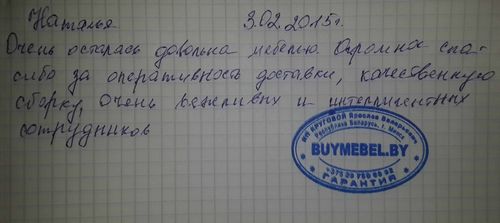 Наталья 3.02.2015г.
Очень осталась довольна мебелью. Огромное спа-
сибо за оперативность доставки, качественную
сборку, очень вежливых и интеллигентных
сотрудников
ИП КРУГОВОЙ Ярослав Валерьевич
Республика Беларусь, г. Минск
BUYMEBEL.BY
ГАРАНТИЯ